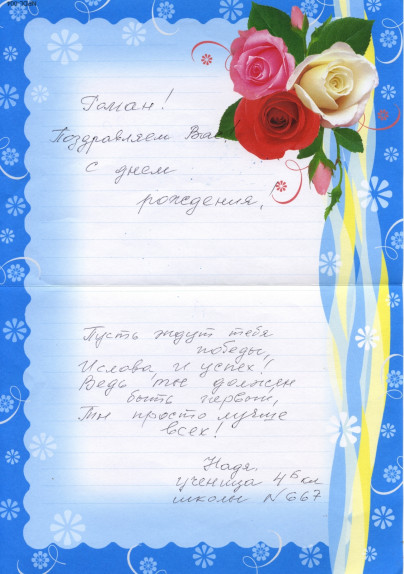 Роман!
Поздравляем Вас
с днем
рождения,
Пусть ждут тебя
победы,
И слава, и успех!
Ведь ты должен
быть первым,
Ты просто лучше
всех!
Надя,
ученица 4Б кл
школы №667